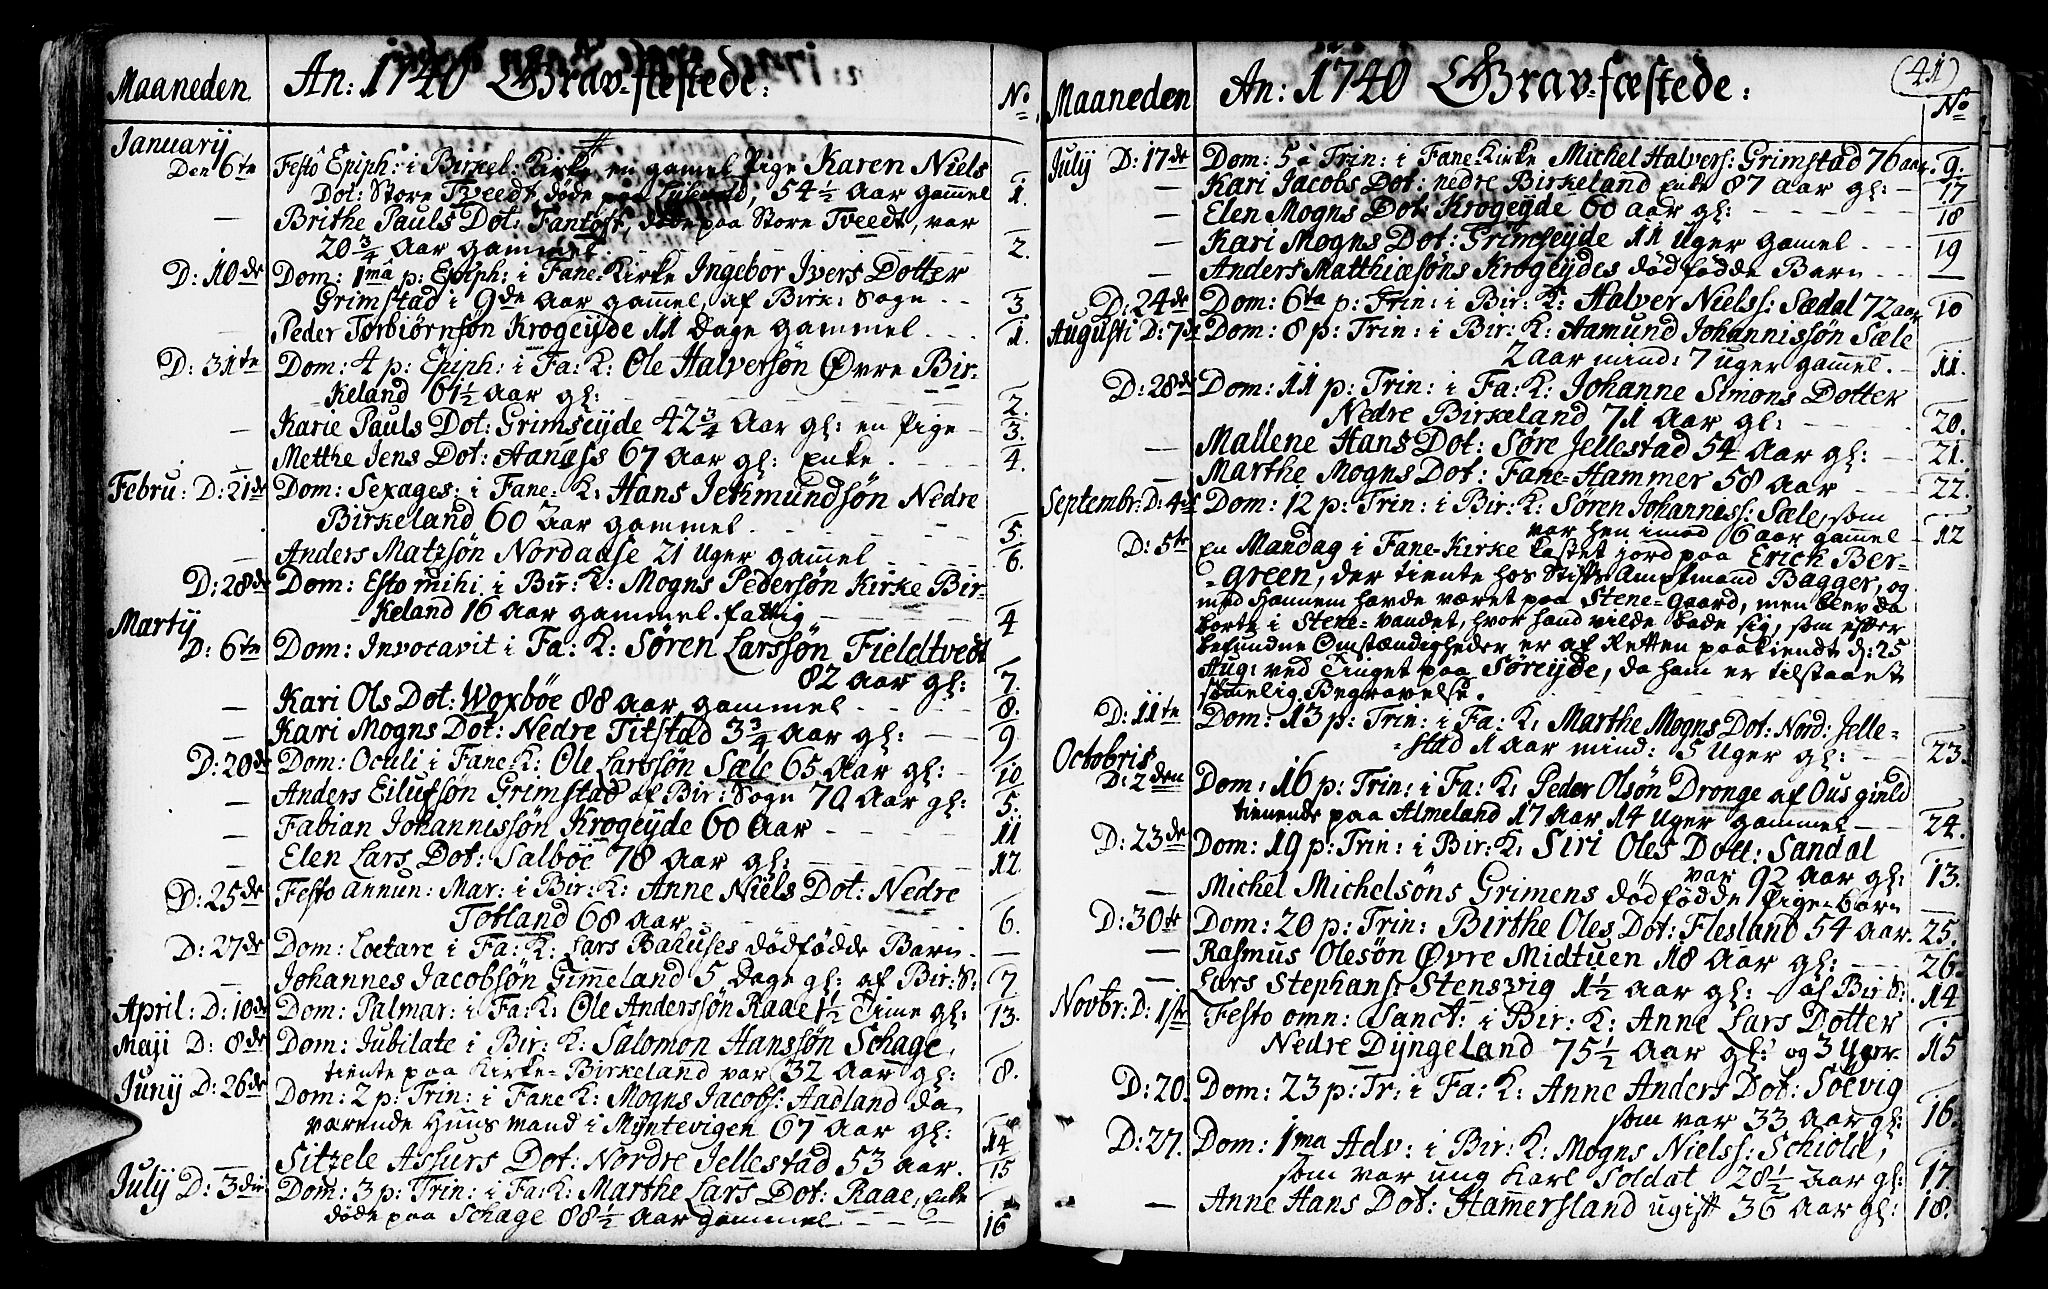 Maaneden
An: 1740 Grav-fæstede:
No
January
Den 6te Festo Epiph: i Birkel: Kirke en gamel Pige Karen Niels
Dot: Store Tveedt, døde paa 54 1/2 Aar gam̄el 1.
— Brithe Pauls Dot: Fantøft, døde paa Store Tveedt, var
20 3/4 Aar gam̄el. 2.
D: 10de Dom: 1mâ p: Epiph: i Fane-Kirke Ingebor Ivers Dotter
Grimstad i 9de Aar gam̄el af Birk: Sogn - - 3
— Peder Torbiørnsøn Krogeijde 11 Dage gam̄el - - 1.
D: 31te Dom: 4 p: Epiph: i Fa: K: Ole Halversøn Øvre Bir-
keland 61 1/2 aar gl: 2.
— Karie Pauls Dot: Grimseijde 42 3/4 Aar gl: en Pige - 3.
— Metthe Jens Dot: Aanæss 67 Aar gl: Enke. 4.
Febru: D: 21de Dom: Sexages: i Fane-K: Hans Jethmundsøn Nedre
Birkeland 60 Aar gam̄el. 5.
— Anders Matzsøn Nordaase 21 Uger gam̄el 6.
D: 28de Dom: Esto mihi i Bir: K: Mogns Pedersøn Kirke Bir-
-keland 16 Aar gam̄el. fattig 4
Martij
D: 6te Dom: Invocavit i Fa: K: Søren Larssøn Fieldtvedt
82 aar gl: 7.
— Kari Ols Dot: Woxbøe 88 aar gam̄el - 8.
— Kari Mogns Dot: Nedre Titstad 3 3/4 Aar gl: 9
D: 20de Dom: Oculi i Fane K: Ole Larssøn Sæle 65 Aar gl: 10
— Anders Eilufsøn Grimstad af Bir: Sogn 70 Aar gl: 5.
— Fabian Johannissøn Krogeijde 60 Aar 11
— Elen Lars Dot: Salbøe 78 Aar gl: 12.
D: 25de Festo Annun: Mar: i Bir: K: Anne Niels Dot: Nedre
Totland 68 aar 6.
D: 27de Dom: Loetare i Fa: K: Lars Bahuses dødfødde Barn. —
Johannes Jacobsøn Gim̄eland 5 Dage gl: af Bir: S: 7
April: D: 10de Dom: Palmar: i Fa: K: Ole Anderssøn Raae 1 1/2 Time gl: 13.
Meji D: 8de Dom: Jubilate i Bir: K: Salomon Hanssøn Schage,
tiente paa Kirke-Birkeland var 32 Aar gl: 8.
Junij D: 26de Dom: 2 p: Trin: i Fane K: Mogns Jacobs: Aadland da
værende Huusmand i Myntevigen 67 Aar gl: 14
Sitzele Assurs Dot: Nordre Jellestad 53 aar. 15
Julij D: 3die Dom: 3 p: Trin: i Fa: K: Marthe Lars Dot: Raae, Enke
døde paa Schage 88 1/2 Aar gam̄el 16
Maaneden
An: 1740 Grav-fæstede:
(41)
No
July D: 17de Dom: 5 p: Trin: i Fane Kirke Michel Halvers: Grimstad 76 aar. 9.
— Kari Jacobs Dot: nedre Birkeland Enke 87 aar gl: 17
— Elen Mogns Dot: Krogeijde 60 aar gl: 18
— Kari Mogns Dot: Grimseijde 11 Uger gamel 19
— Anders Matthiæsøns Krogeijdes dødfødde Barn - - —
D: 24de Dom: 6ta p: Trin: i Bir: K: Halver Nielss: Sædal 72 aar 10
Augusti D: 7de Dom: 8 p: Trin: i Bir: K: Aamund Johannissøn Sæle
2 aar mind: 7 uger gam̄el. 11.
D: 28de Dom: 11 p: Trin: i Fa: K: Johanne Simons Dotter
Nedre Birkeland 71 Aar gl: 20.
— Mallene Hans Dot: Søre Jellestad 54 Aar gl: 21.
— Marthe Mogns Dot: Fane-Hammer 58 aar 22.
Septembr: D: 4de Dom: 12 p: Trin: i Bir: K: Søren Johanniss: Sæle, som
var hen imod 6 aar gam̄el 12
D: 5te En Mandag i Fane-Kirke kastet jord paa Erick Ber-
-green, der tiente hos Stifts Amptmand Bagger, og
med Hannem havde været paa Stene-Gaard, men blev da
borte i Stene-Vandet, hvor hand vilde bade sig, som efter
befundne Omstændigheder er af Retten paakiendt d: 25
Aug: ved Tinget paa Søreijde, da ham er tilstaaet
sømelig Begravelse.
D: 11te Dom: 13 p: Trin: i Fa: K: Marthe Mogns Dot: Nord: Jelle-
-stad 1 aar mind: 5 Uger gl: 23.
Octobris
D: 2den Dom: 16 p: Trin: i Fa: K: Peder Olsøn Dronge af Ous gield
tienende paa Almeland 17 Aar 14 Uger gam̄el 24.
D: 23de Dom: 19 p: Trin: i Bir: K: Siri Oles Dott: Sandal
var 92 aar gl: 13.
— Michel Michelsøns Grimens dødfødde Pige-barn
D: 30te Dom: 20 p: Trin: Birthe Oles Dot: Flesland 54 aar. 25.
— Rasmus Olesøn Øvre Midtuen 18 Aar gl: 26.
— Lars Stephans: Stensvig 1 1/2 aar gl: - af Bir S: 14
Novbr: D: 1ste Festo omn: Sanct: i Bir: K: Anne Lars Dotter
Nedre Dyngeland 75 1/2 Aar gl: og 3 Uger- 15
D: 20. Dom: 23 p: Tr: i Fa: K: Anne Anders Dot: Soevig
som var 33 Aar gl: 16.
D: 27. Dom: 1ma Adv: i Bir: K: Mogns Nielss: Schiold,
som var ung Karl Soldat 28 1/2 Aar gl: 17.
— Anne Hans Dot: Ham̄ersland ugift 36 Aar gl: 18.